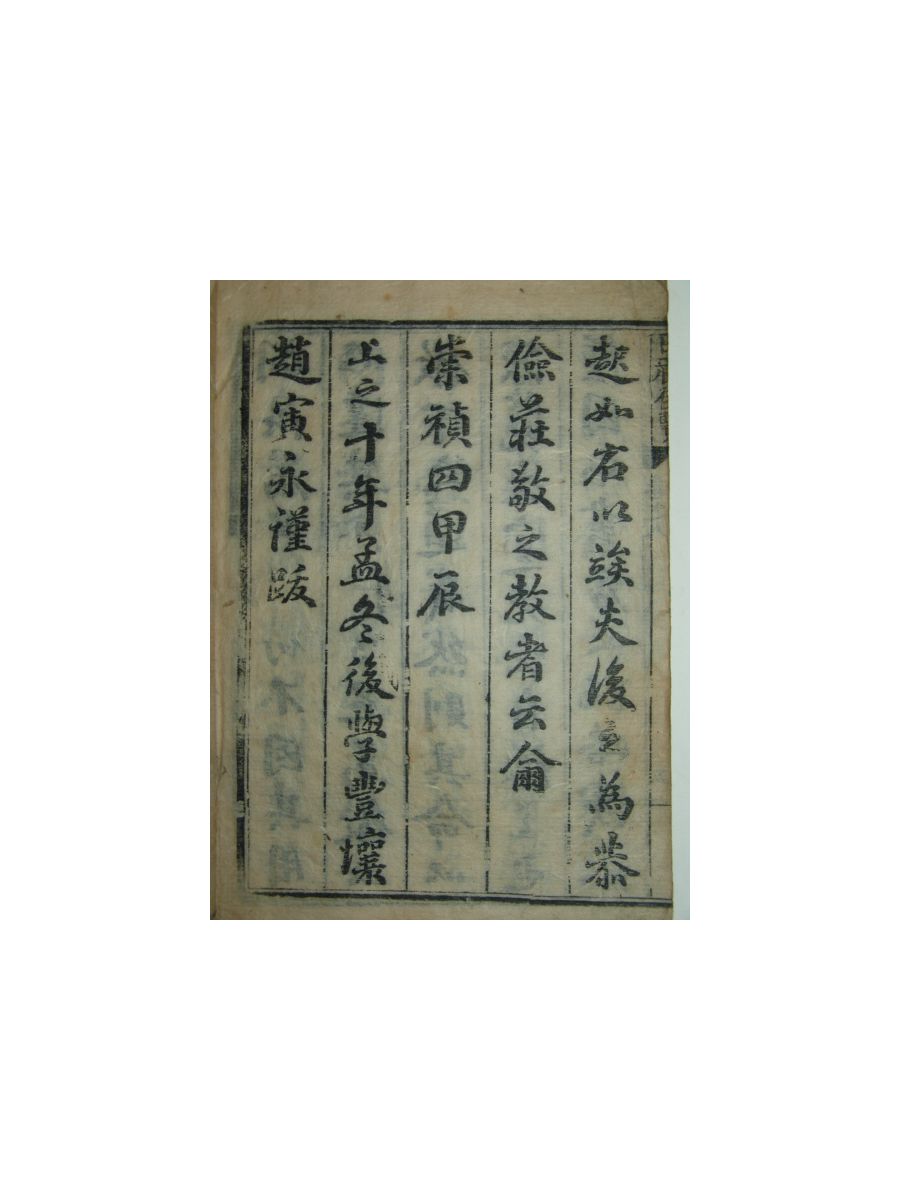 趨如右以竢夫後之為恭
儉莊敬之教者云爾
崇禎四甲辰
上之十年孟冬後學豐壤
趙寅永謹跋